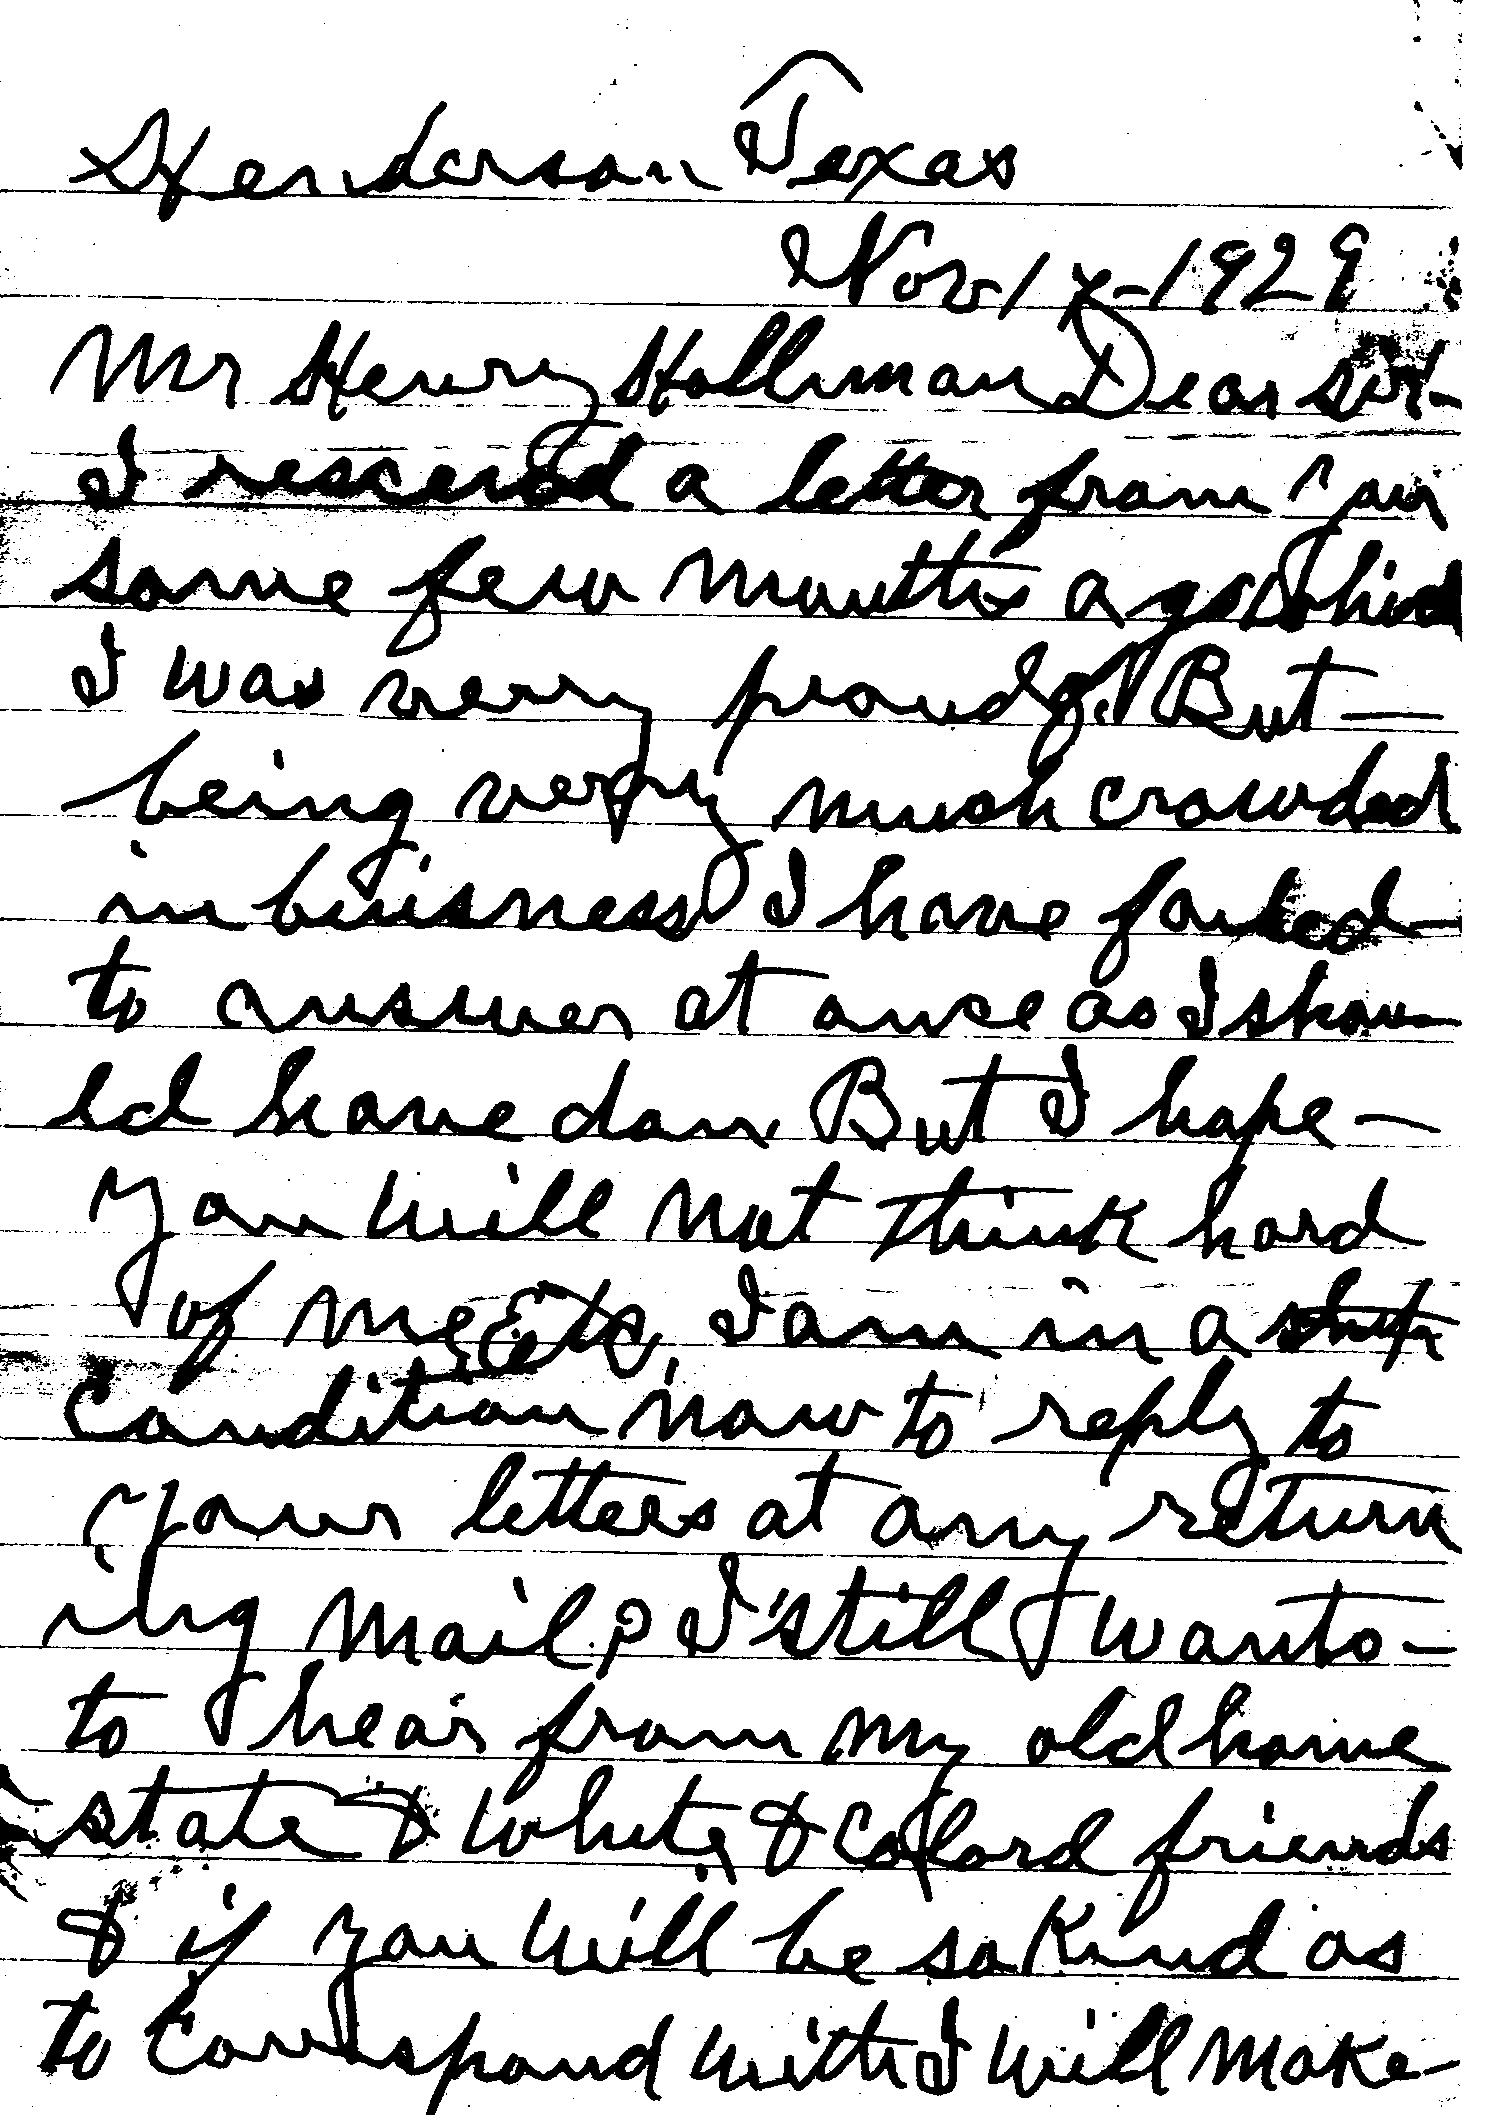 Henderson Texas
Nov 17-1929
Mr Henry Holliman Dear Sir-
I resceved a letter from you
some few months ago which
I was very proud of. But-
being very much crowded
in buisness I have failed-
to answer at once as I shou-
ld have don But I hope-
you will not think hard
of me Etc, I am in a
condition now to reply to
your letters at any return
ing mail, I still want to-
to hear from my old home
state & White, & Colord friends
& if you will be so kind as
to Correspond with I will make-